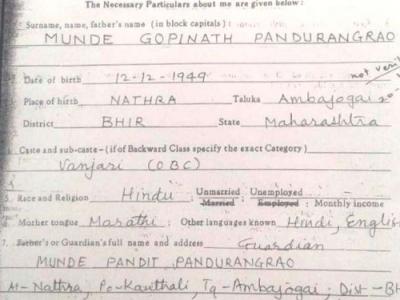 The Necessary Particulars about me are given below:
Surname, name, father's name (in block capitals):
MUNDE GOPINATH PANDURANGRAO
Date of birth 12-12-1949 not
Place of birth NATHRA Taluka Ambajogai
District BHIR State Maharashtra
Caste and sub-caste-(if of Backward Class specify the exact Category)
Vanjari (OBC)
5. Race and Religion Hindu; Unmarried Unemployed
Married Employed: Monthly income
6. Mother tongue Marathi; Other languages known Hindi, Englis
7. Father's or Guardian's full name and address Guardian
MUNDE PANDIT PANDURANGRAO
At-Nathra, Po-Kauthali, Tq-Ambajogai; Dist-BH